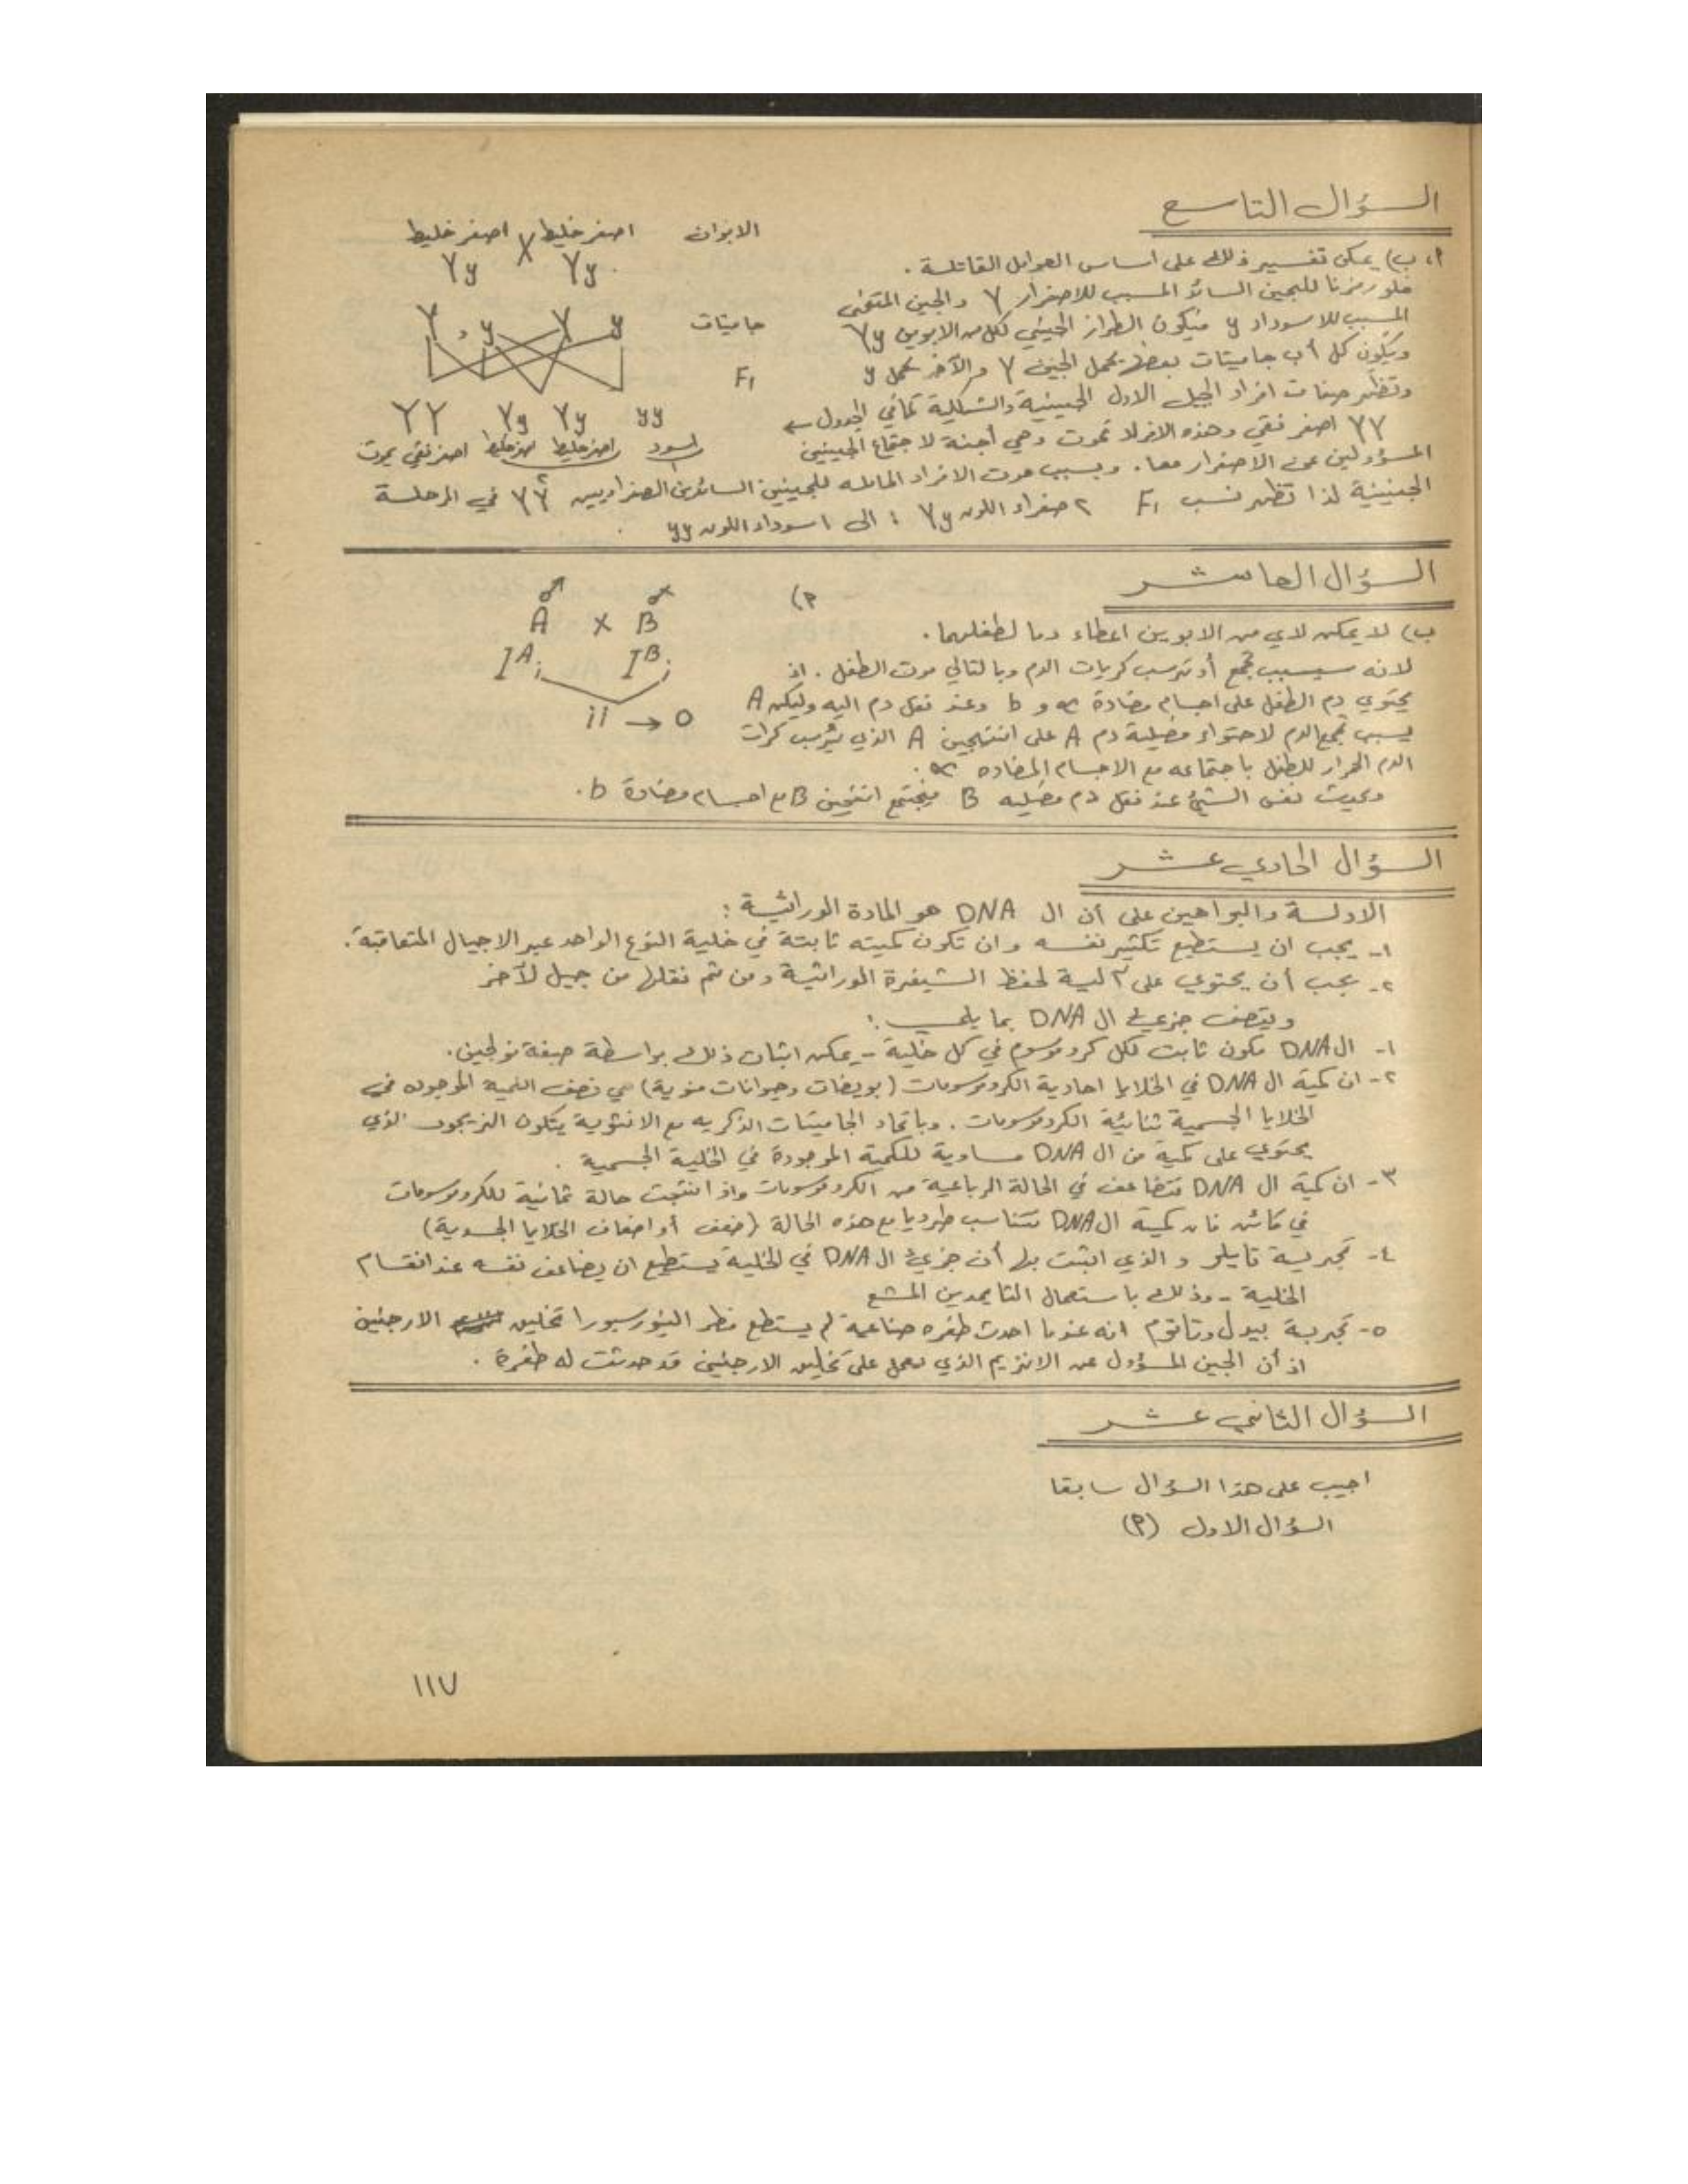 السؤال التاسع
الابوان اصفر خليط X اصفر خليط
Yy Yy
أ، ب) يمكن تفسير ذلك على اساس العوامل القاتلة .
فلو رمزنا للجين السائد المسبب للاصفرار Y والجين المتنحي
المسبب للاسوداد y فيكون الطراز الجيني لكل من الابوين Yy
جاميتات Y , y Y y
ويكون كل أب جاميتات بعضها يحمل الجين Y والآخر يحمل y
F1
وتظهر صفات افراد الجيل الاول الجينية والشكلية كما في الجدول ←
YY Yy Yy yy
YY اصفر نقي وهذه الافراد تموت وهي أجنة لاجتماع الجينين
اسود اصفر خليط اصفر خليط اصفر نقي يموت
المسؤولين عن الاصفرار معا . وبسبب موت الافراد الحامله للجينين السائدين الصفراويين YY في المرحلة
الجنينية لذا تظهر نسب F1 ٢ صفراء اللون Yy : الى ١ سوداء اللون yy .
السؤال العاشر
أ)
A x B
IAi IBi
ii → O
ب) لا يمكن لاي من الابوين اعطاء دما لطفلهما .
لانه سيسبب تجمع أو ترسب كريات الدم وبالتالي موت الطفل . اذ
يحتوي دم الطفل على اجسام مضادة ∝ و b وعند نقل دم اليه وليكن A
يسبب تجمع الدم لاحتواء فصيلة دم A على انتيجين A الذي يُرسب كرات
الدم الحمراء للطفل باجتماعه مع الاجسام المضاده ∝ .
ويحدث نفس الشيء عند نقل دم فصيله B فيجتمع انتيجين B مع اجسام مضادة b .
السؤال الحادي عشر
الادلة والبراهين على أن ال DNA هو المادة الوراثية :
١- يجب ان يستطيع تكثير نفسه وان تكون كميته ثابتة في خلية النوع الواحد عبر الاجيال المتعاقبة .
٢- يجب أن يحتوي على آلية لحفظ الشيفرة الوراثية ومن ثم نقلها من جيل لآخر
ويتصف جزيء ال DNA بما يلي :
١- ال DNA مكون ثابت لكل كروموسوم في كل خلية - يمكن اثبات ذلك بواسطة صبغة فولجين .
٢- ان كمية ال DNA في الخلايا احادية الكروموسومات (بويضات وحيوانات منوية) هي نصف الكمية الموجوده في
الخلايا الجسمية ثنائية الكروموسومات . وباتحاد الجاميتات الذكريه مع الانثوية يتكون الزيجوت الذي
يحتوي على كمية من ال DNA مساوية للكمية الموجودة في الخلية الجسمية .
٣- ان كمية ال DNA تتضاعف في الحالة الرباعية من الكروموسومات واذا انتجت حالة ثمانية للكروموسومات
في كائن فان كمية ال DNA تتناسب طرديا مع هذه الحالة (ضعف أو اضعاف الخلايا الجسدية)
٤- تجربة تايلر والذي اثبت بها أن جزيء ال DNA في الخلية يستطيع ان يضاعف نفسه عند انقسام
الخلية - وذلك باستعمال الثايمدين المشع
٥- تجربة بيدل وتاتوم انه عندما احدث طفره صناعية لم يستطع فطر النيورسبورا تخليق الارجنين
اذ أن الجين المسؤول عن الانزيم الذي يعمل على تخليق الارجنين قد حدثت له طفرة .
السؤال الثاني عشر
اجيب على هذا السؤال سابقا
السؤال الاول (أ)
١١٧